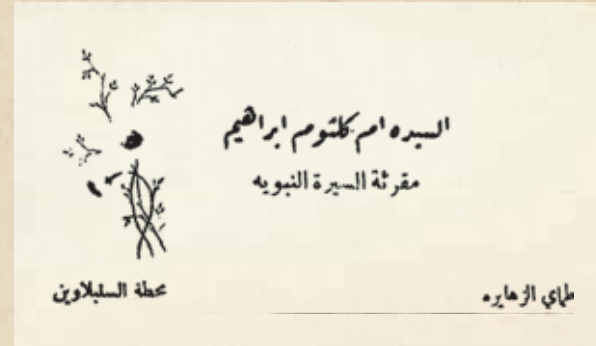 السيده ام كلثوم ابراهيم
مقرئة السيرة النبويه
طماي الزهايره
محطة السنبلاوين